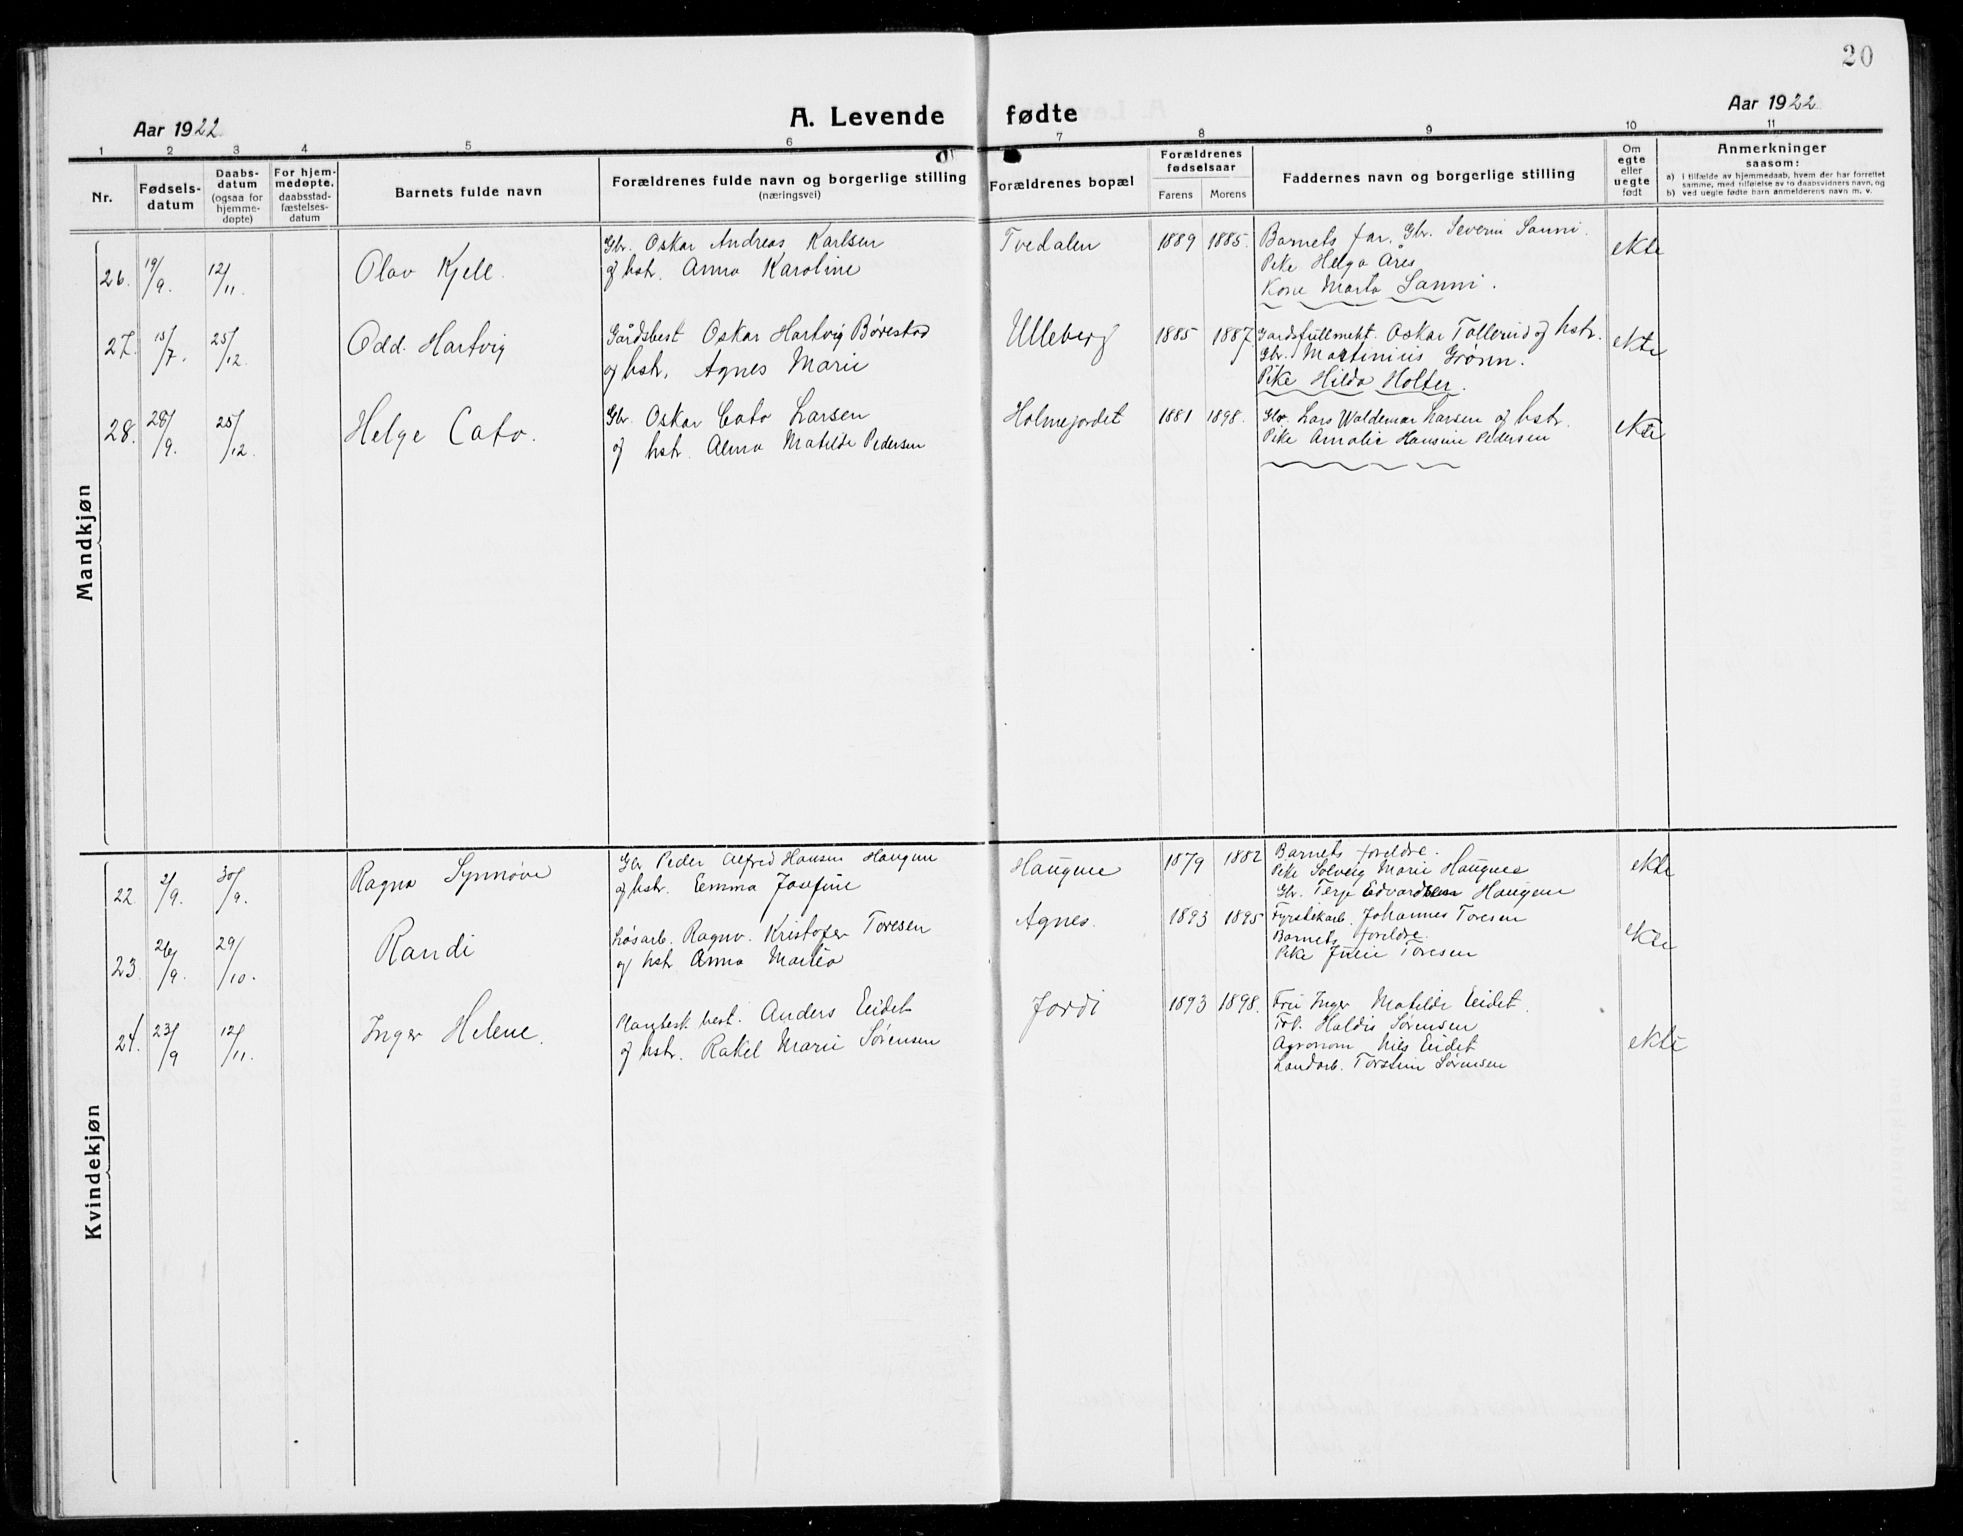 20
Aar 1922
A. Levende fødte
Aar 1922
1 2 3 4 5 6 7 8 9 10 11
Nr.
Fødsels-
datum
Daabs-
datum
(ogsaa for
hjemme-
døpte)
For hjem-
medøpte,
daabsstad-
fæstelses-
datum
Barnets fulde navn
Forældrenes fulde navn og borgerlige stilling
(næringsvei)
Forældrenes bopæl
Forældrenes
fødselsaar
Farens Morens
Faddernes navn og borgerlige stilling
Om
egte
eller
uegte
født
Anmerkninger
saasom:
a) i tilfælde av hjemmedaab, hvem der har forrettet
samme, med tilføielse av to daabsvidners navn, og
b) ved uegte fødte barn anmelderens navn m. v.
Mandkjøn
26. 19/9. 12/11. Olav Kjell.
Gbr. Oskar Andreas Karlsen
og hstr. Anna Karoline
Tvedalen 1889 1885.
Barnets far. Gbr. Severin Sanni.
Pike Helga Åres
Kone Marta Sanni.
ekte
27. 15/7. 25/12. Odd. Hartvig
Gårdsbest Oskar Hartvig Børestad
og hstr. Agnes Marie
Ulleberg 1885 1887
Gardsfullmekt. Oskar Tollerud og hstr.
Gbr. Martinius Grønn.
Pike Hilda Holter.
ekte
28. 28/9. 25/12. Helge Cato.
Gbr. Oskar Cato Larsen
og hstr. Alma Matilde Pedersen
Holmejordet 1881 1898.
Gbr. Lars Waldemar Larsen og hstr.
Pike Amalie Hansine Pedersen
ekte
Kvindekjøn
22. 2/9. 30/9. Ragna Synnøve
Gbr Peder Alfred Hansen Haugene
og hstr. Emma Josefine
Haugene 1879 1882
Barnets foreldre.
Pike Solveig Marie Haugnes
Gbr. Terje Edvardsen Haugene
ekte
23. 26/9. 29/10. Randi
Løsarb. Ragnv. Kristofer Toresen
og hstr Anna Maria
Agnes. 1893 1895
Fyrstikarb. Johannes Toresen
Barnets foreldre.
Pike Julie Toresen
ekte
24. 23/9 12/11. Inger Helene.
best. Anders Eidet
og hstr. Rakel Marie Sørensen
Jordi 1893 1898.
Fru Inger Matilde Eidet.
Frk. Haldis Sørensen
Agronom Nils Eidet
Landarb. Torstein Sørensen
ekte